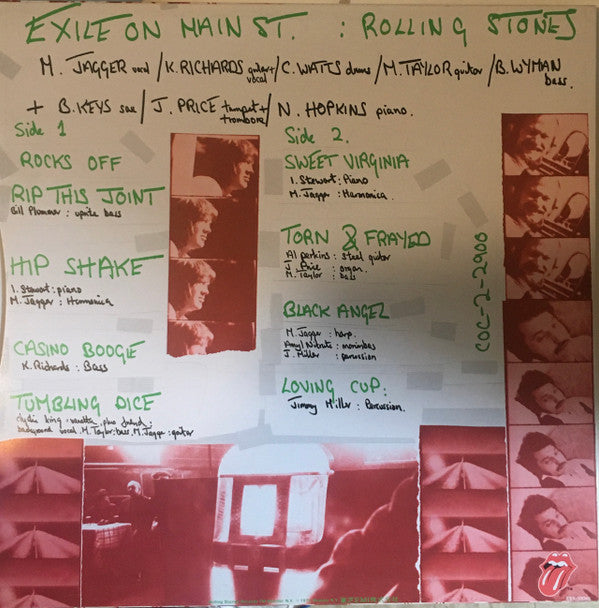 EXILE ON MAIN ST. : ROLLING STONES
M. JAGGER vocal / K. RICHARDS guitar+ vocal / C. WATTS drums / M. TAYLOR guitar / B. WYMAN bass.
+ B. KEYS sax / J. PRICE trumpet + trombone / N. HOPKINS piano.
Side 1
ROCKS OFF
RIP THIS JOINT
Bill Plummer : uprite bass
HIP SHAKE
I. Stewart : piano
M. Jagger : Harmonica
CASINO BOOGIE
K. Richards : Bass
TUMBLING DICE
clydie king - vanetta, plus friend :
background vocal. M. Taylor : bass. M. Jagger : guitar
Side 2.
SWEET VIRGINIA
I. Stewart : Piano
M. Jagger : Harmonica.
TORN & FRAYED
Al perkins : steel guitar
J. Price : organ.
M. Taylor : bass
BLACK ANGEL
M. Jagger : harp.
Amyl Nitrate : marimbas
J. Miller : percussion
LOVING CUP :
Jimmy Miller : Percussion.
COC-2-2900